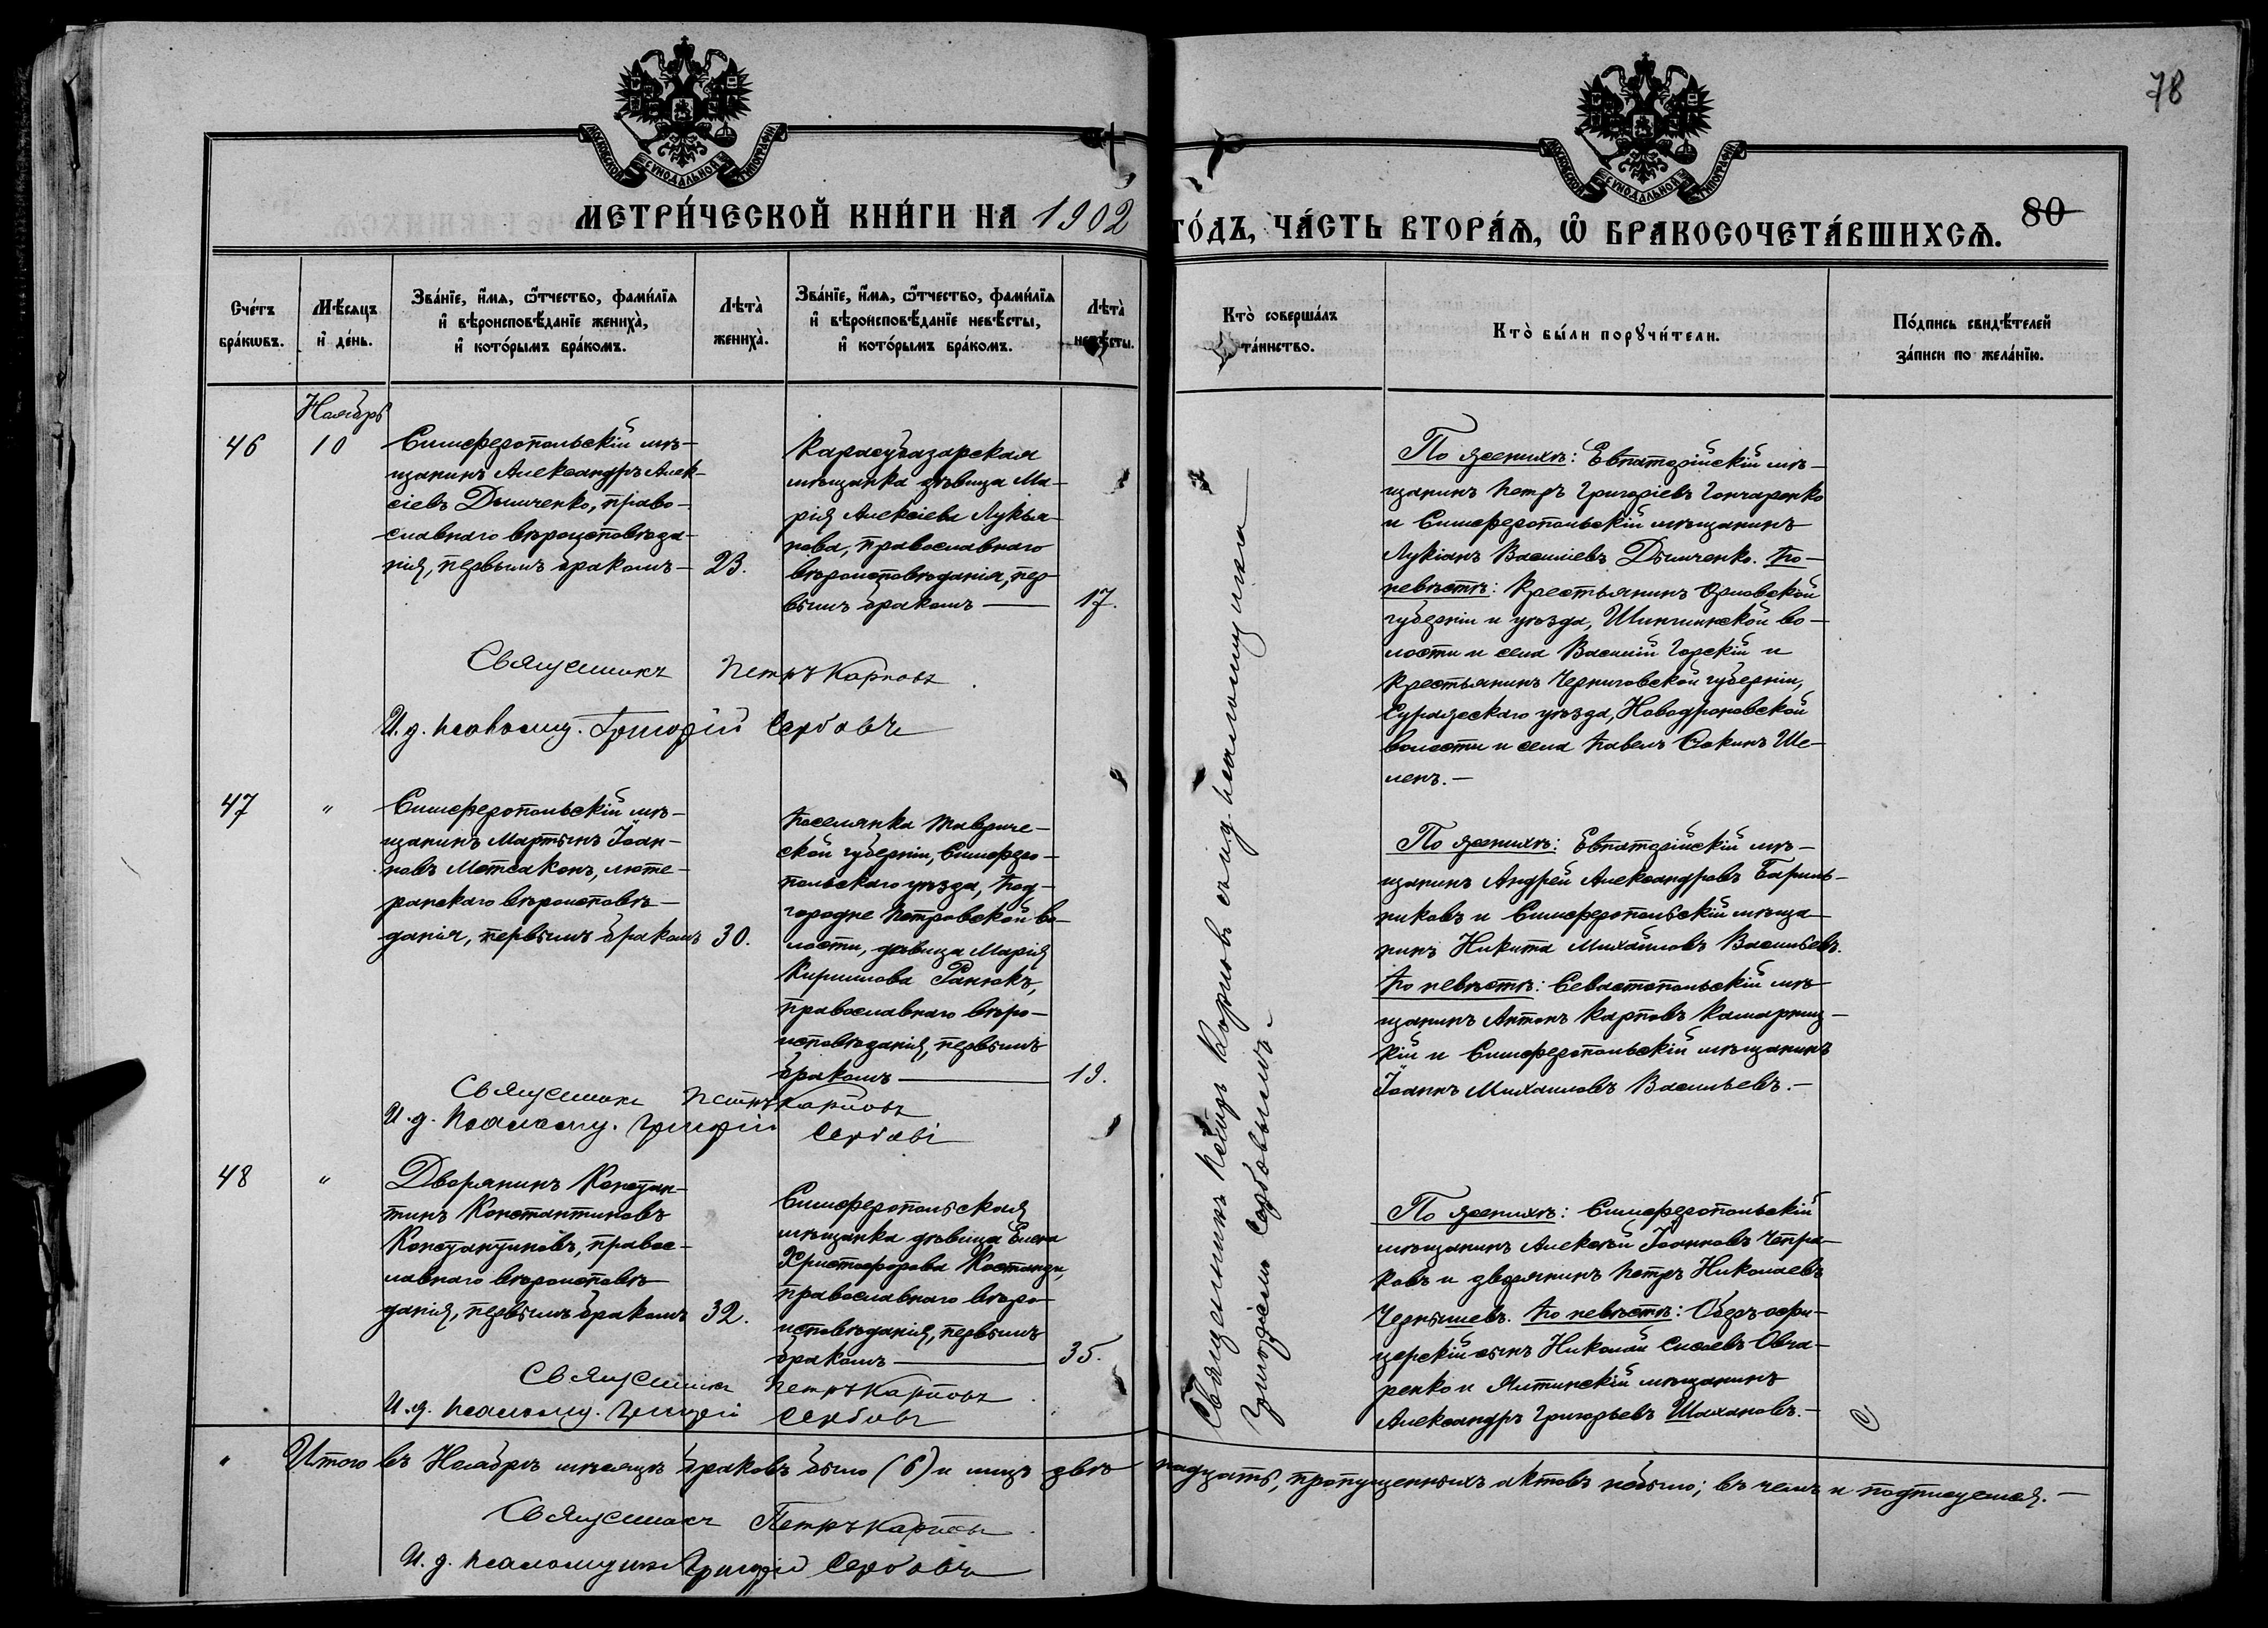 78
МОСКОВСКОЙ СѴНОДАЛЬНОЙ ТИПОГРАФІИ
МОСКОВСКОЙ СѴНОДАЛЬНОЙ ТИПОГРАФІИ
МЕТРИ́ЧЕСКОЙ КНИ́ГИ НА 1902
ГО́ДЪ, ЧА́СТЬ ВТОРА́Ѧ, Ѿ БРАКОСОЧЕТА́ВШИХСѦ.
80
Сче́тъ
бра́кѡвъ.
Мѣ́сяцъ
и҆ де́нь.
Зва́нїе, и҆́мѧ, ѻ҆́тчество, фами́лїѧ
и҆ вѣроисповѣ́данїе жениха̀,
и҆ кото́рымъ бра́комъ.
Лѣта̀
жениха̀.
Зва́нїе, и҆́мѧ, ѻ҆́тчество, фами́лїѧ
и҆ вѣроисповѣ́данїе невѣ́сты,
и҆ кото́рымъ бра́комъ.
Лѣта̀
невѣ́сты.
Кто̀ соверша́лъ
та́инство.
Кто̀ бы́ли порꙋчи́тели.
По́дпись свидѣ́телей
за́писи по жела́нїю.
Ноябрь
46
10
Симферопольскій мѣ-
щанинъ Александръ Алек-
сіевъ Дымченко, право-
славнаго вѣроисповѣда-
нія, первымъ бракомъ-
23.
Карасубазарская
мѣщанка дѣвица Ма-
рія Алексіева Лукья-
нова, православнаго
вѣроисповѣданія, пер-
вымъ бракомъ —
17.
Священникъ Петръ Карповъ
И. д. псаломщ. Григорій Сербовъ
По женихѣ: Евпаторійскій мѣ-
щанинъ Петръ Григоріевъ Гончаренко
и Симферопольскій мѣщанинъ
Лукіанъ Василіевъ Дымченко. По
невѣстѣ: Крестьянинъ Орловской
губерніи и уѣзда,
волости и села Василій Горскій и
крестьянинъ Черниговской губерніи,
Суражскаго уѣзда, Новодроковской
волости и села Павелъ Ше-
ленъ.-
47
"
Симферопольскій мѣ-
щанинъ Мартынъ Іоан-
новъ люте-
ранскаго вѣроисповѣ-
данія, первымъ бракомъ
30.
Поселянка Тавриче-
ской губерніи, Симферо-
польскаго уѣзда, Под-
городне Петровской во-
лости, дѣвица Марія
Кириллова Ранюкъ,
православнаго вѣро-
исповѣданія, первымъ
бракомъ —
19.
Священникъ Петръ Карповъ
И. д. псаломщ. Григорій Сербовъ
По женихѣ: Евпаторійскій мѣ-
щанинъ Андрей Александровъ Бариль-
никовъ и Симферопольскій мѣща-
нинъ Никита Михайловъ Васильевъ.
По невѣстѣ: Севастопольскій мѣ-
щанинъ Антонъ Карповъ
и Симферопольскій мѣщанинъ
Іоаннъ Михаиловъ Васильевъ.-
48
"
Дворянинъ Констан-
тинъ Константиновъ
Константиновъ, правос-
лавнаго вѣроисповѣ-
данія, первымъ бракомъ
32.
Симферопольская
мѣщанка дѣвица Елена
Христофорова Костанди,
православнаго вѣро-
исповѣданія, первымъ
бракомъ —
35.
Священникъ Петръ Карповъ
И. д. псаломщ. Григорій Сербовъ
По женихѣ: Симферопольскій
мѣщанинъ Алексѣй Іоанновъ Чепра-
ковъ и дворянинъ Петръ Николаевъ
Чернышевъ. По невѣстѣ: Оберъ-офи-
церскій сынъ Николай Овча-
ренко и Ялтинскій мѣщанинъ
Александръ Григорьевъ Шахановъ.-
Священникъ Петръ Карповъ съ и.д. псаломщика
Григоріемъ Сербовымъ.
" Итого въ Ноябрѣ мѣсяцѣ браковъ было (6) и лицъ двѣнадцать, пропущенныхъ актовъ небыло; въ чемъ и подписуемся.-
Священникъ Петръ Карповъ
И. д. псаломщика Григорій Сербовъ